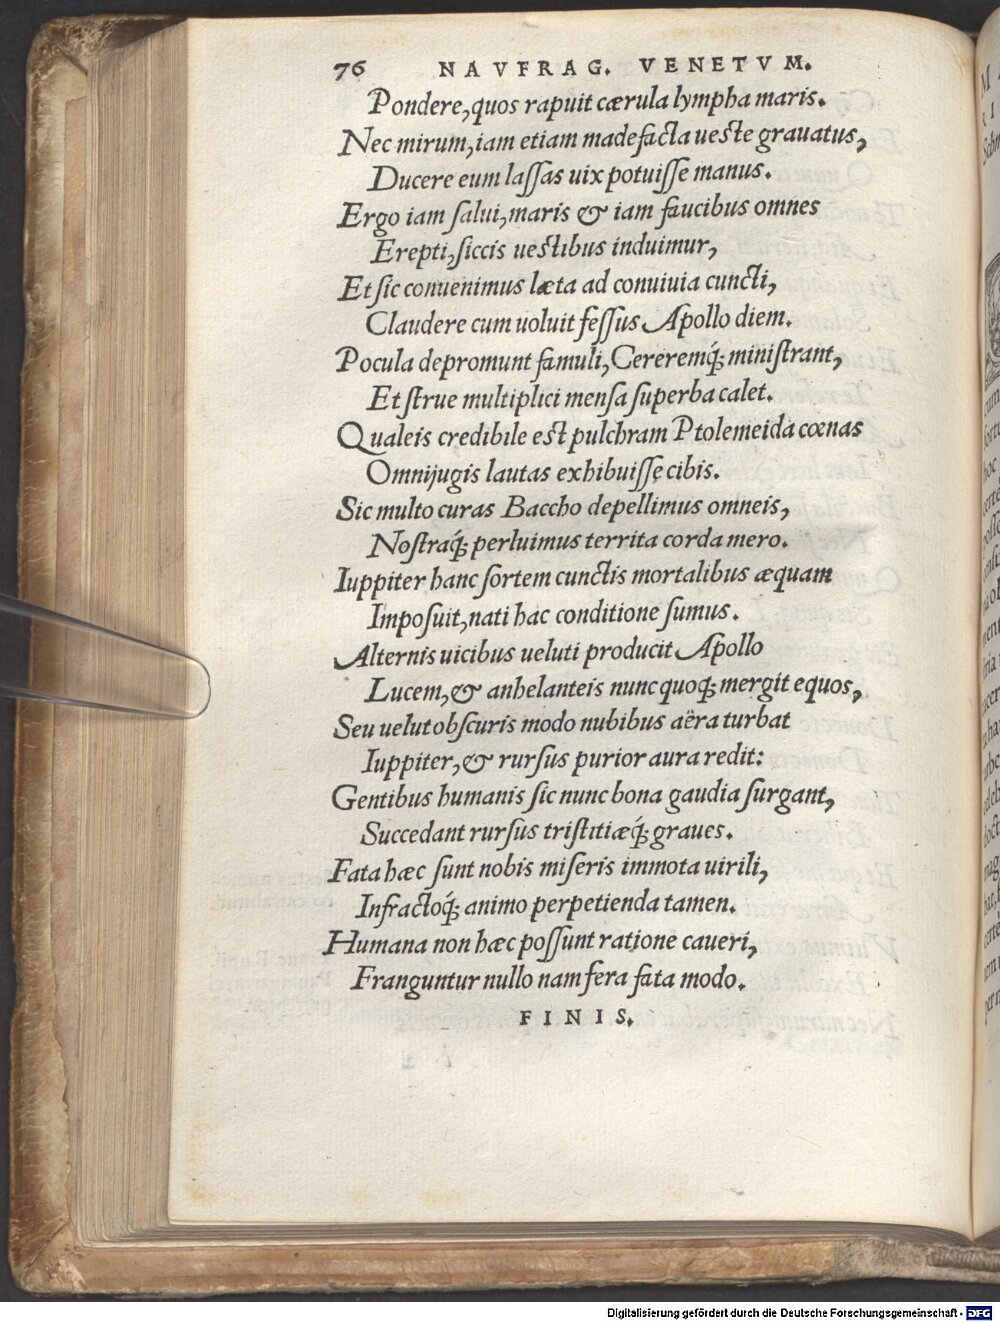 76 NAVFRAG. VENETVM.
Pondere, quos rapuit cærula lympha maris.
Nec mirum, iam etiam madefacta ueste grauatus,
Ducere eum lassas uix potuisse manus.
Ergo iam salui, maris & iam faucibus omnes
Erepti, siccis uestibus induimur,
Et sic conuenimus læta ad conuiuia cuncti,
Claudere cum uoluit fessus Apollo diem.
Pocula depromunt famuli, Cereremq́; ministrant,
Et strue multiplici mensa superba calet.
Qualeis credibile est pulchram Ptolemeida cœnas
Omnijugis lautas exhibuisse cibis.
Sic multo curas Baccho depellimus omneis,
Nostraq́; perluimus territa corda mero.
Iuppiter hanc sortem cunctis mortalibus æquam
Imposuit, nati hac conditione sumus.
Alternis uicibus ueluti producit Apollo
Lucem, & anhelanteis nunc quoq; mergit equos,
Seu uelut obscuris modo nubibus aëra turbat
Iuppiter, & rursus purior aura redit:
Gentibus humanis sic nunc bona gaudia surgant,
Succedant rursus tristitiæq́; graues.
Fata hæc sunt nobis miseris immota uirili,
Infractoq́; animo perpetienda tamen.
Humana non hæc possunt ratione caueri,
Franguntur nullo nam fera fata modo.
FINIS.
Digitalisierung gefördert durch die Deutsche Forschungsgemeinschaft - DFG